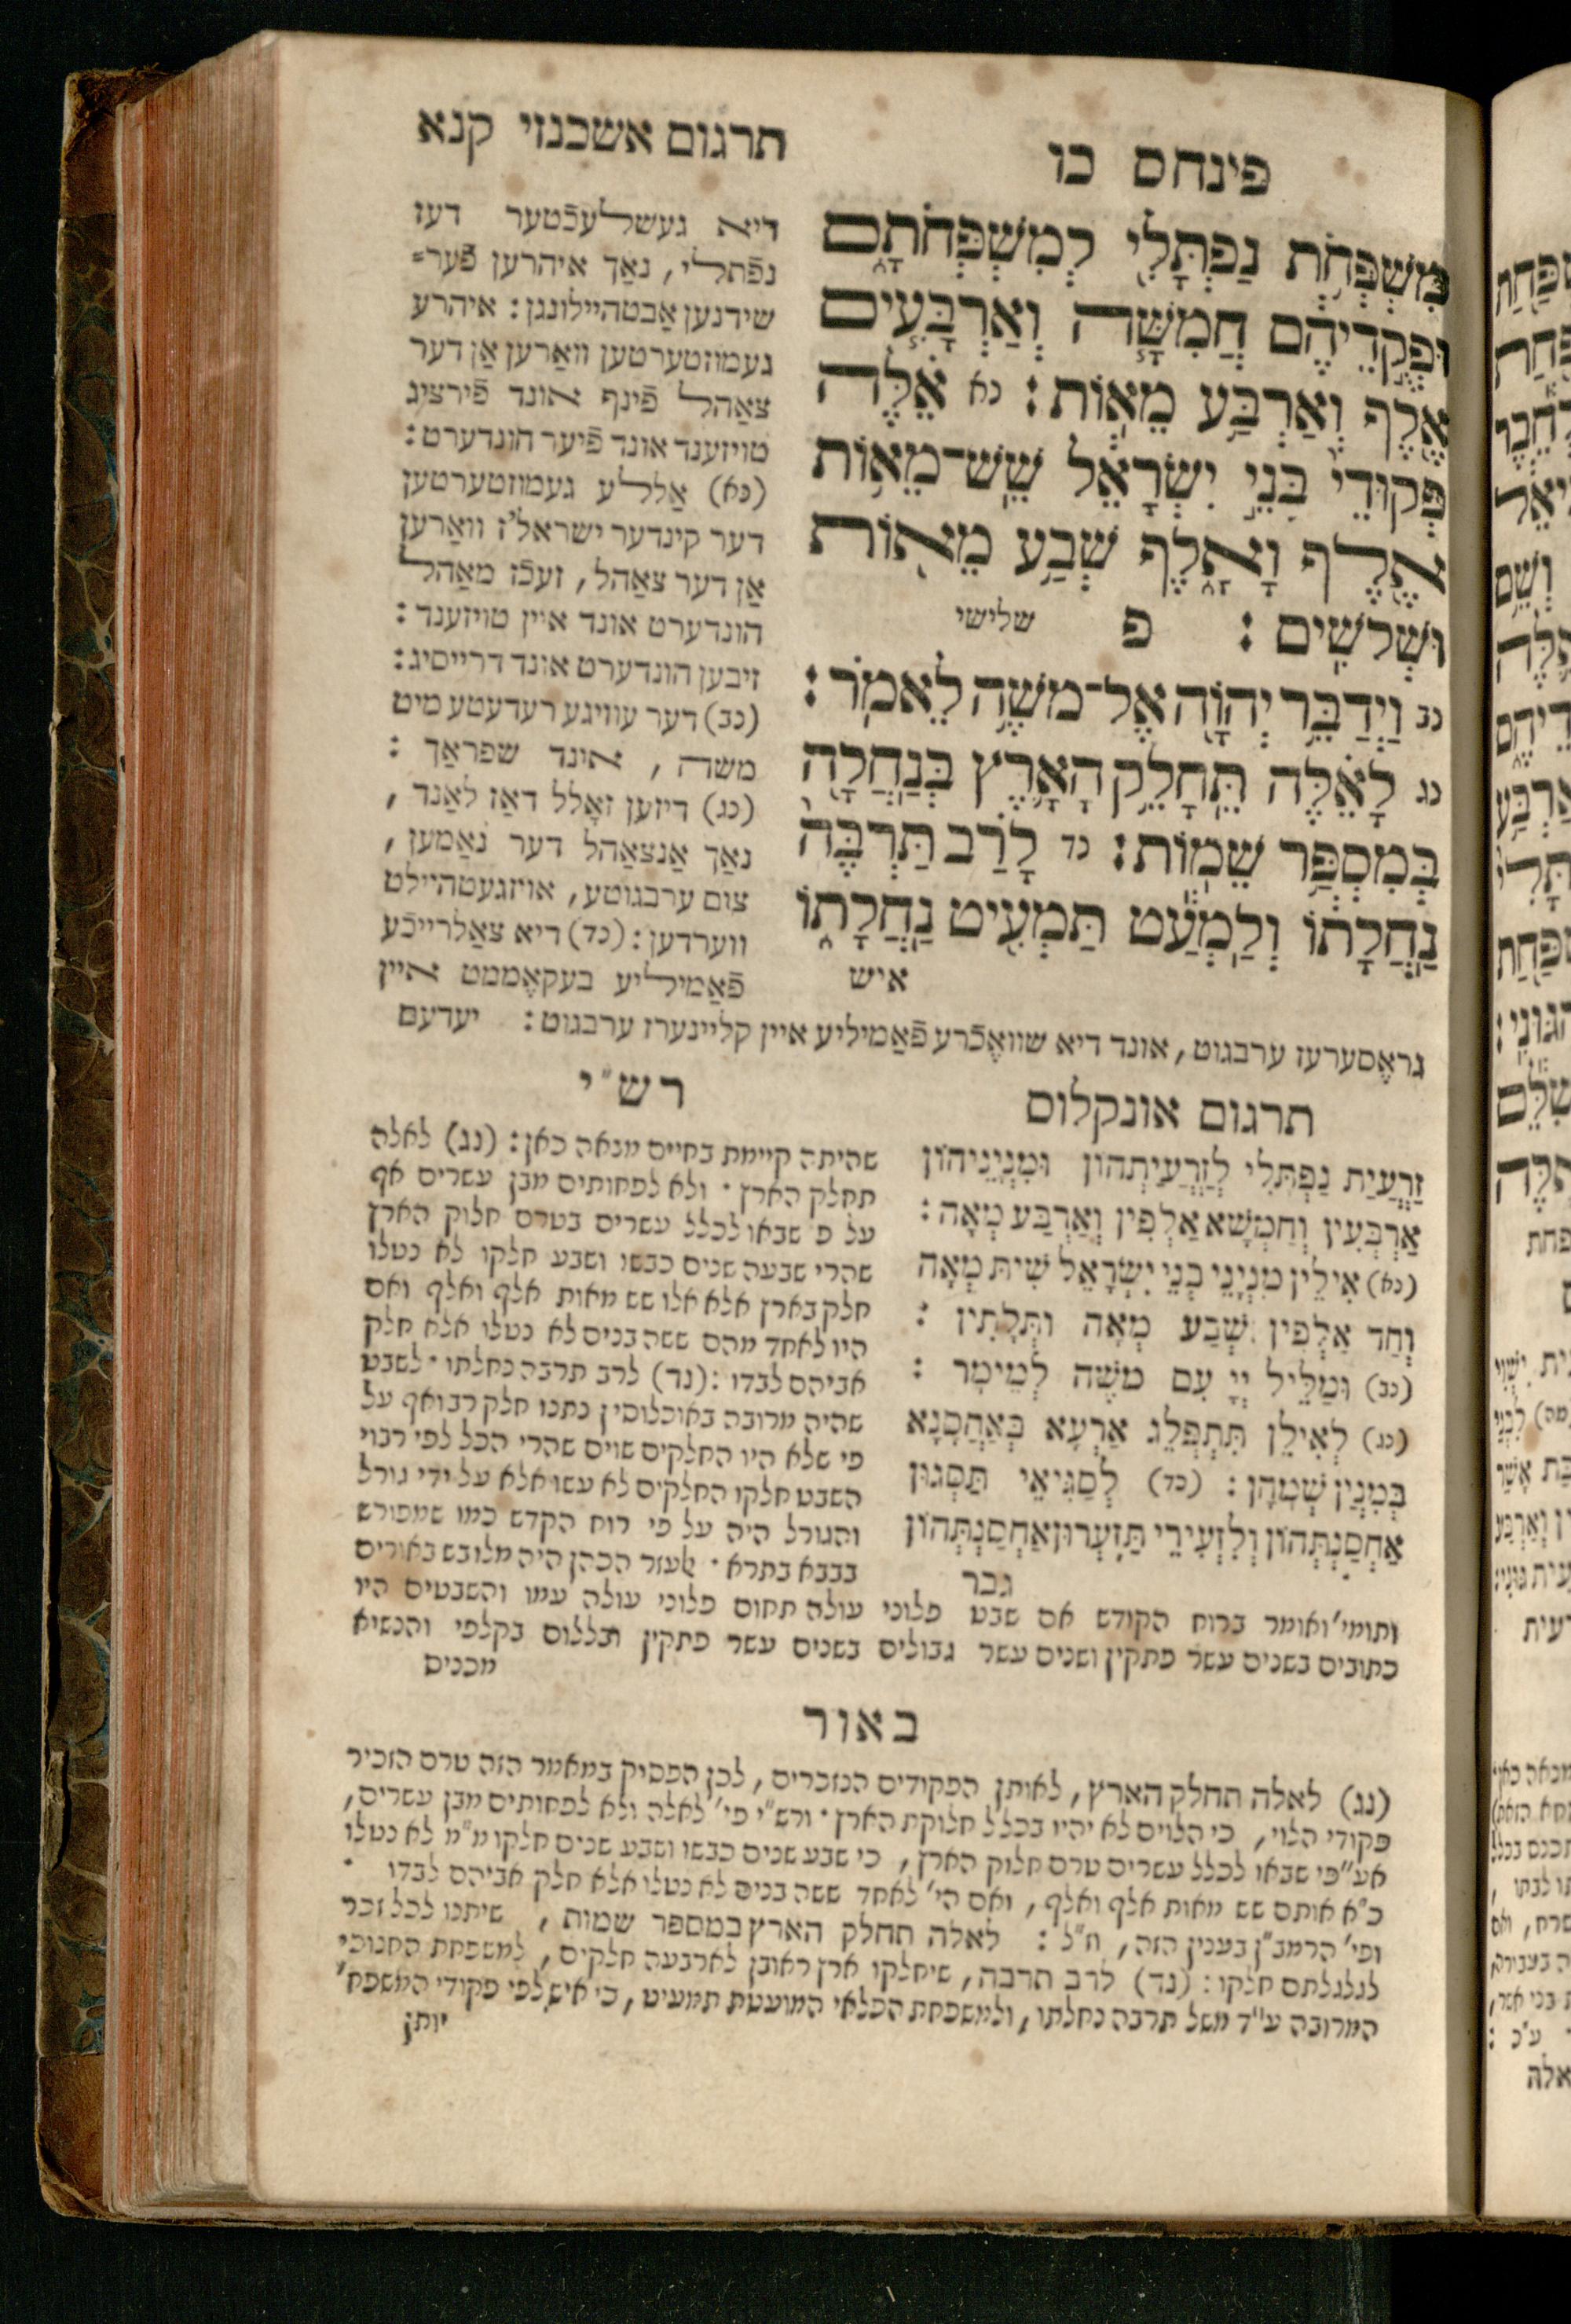 פינחס כו
מִשְׁפְּחֹת נַפְתָּלִי לְמִשְׁפְּחֹתָם
וּפְקֻדֵיהֶם חֲמִשָּׁה וְאַרְבָּעִים
אֶלֶף וְאַרְבַּע מֵאוֹת: נא אֵלֶּה
פְּקוּדֵי בְּנֵי יִשְׂרָאֵל שֵׁשׁ־מֵאוֹת
אֶלֶף וָאָלֶף שְׁבַע מֵאוֹת
וּשְׁלֹשִׁים: פ שלישי
נב וַיְדַבֵּר יְהוָֹה אֶל־מֹשֶׁה לֵּאמֹר:
נג לָאֵלֶּה תֵּחָלֵק הָאָרֶץ בְּנַחֲלָה
בְּמִסְפַּר שֵׁמוֹת: נד לָרַב תַּרְבֶּה
נַחֲלָתוֹ וְלַמְעַט תַּמְעִיט נַחֲלָתוֹ
איש
תרגום אשכנזי קנא
דיא געשלעכֿטער דעז
נפֿתלי, נאַך איהרען פֿער=
שידנען אַבטהיילונגן: איהרע
געמוזטערטען וואַרען אַן דער
צאַהל פֿינף אונד פֿירציג
טויזענד אונד פֿיער הונדערט:
(נא) אַללע געמוזטערטען
דער קינדער ישראל'ז וואַרען
אַן דער צאַהל, זעכֿז מאַהל
הונדערט אונד איין טויזענד:
זיבען הונדערט אונד דרייסיג:
(נב) דער עוויגע רעדעטע מיט
משה, אונד שפראַך:
(נג) דיזען זאָלל דאַז לאַנד,
נאַך אַנצאַהל דער נאַמען,
צום ערבגוטע, אויזגעטהיילט
ווערדען: (נד) דיא צאַלרייכֿע
פֿאַמיליע בעקאָממט איין
גראָסערעז ערבגוט, אונד דיא שוואָכֿרע פֿאַמיליע איין קליינערז ערבגוט: יעדעם
תרגום אונקלוס
זַרְעֲיַת נַפְתָּלִי לְזַרְעֲיָתְהוֹן וּמִנְיָנֵיהוֹן
אַרְבְּעִין וְחַמְשָׁא אַלְפִין וְאַרְבַּע מְאָה:
(נא) אִילֵין מִנְיָנֵי בְּנֵי יִשְׂרָאֵל שִׁית מְאָה
וְחַד אַלְפִין שְׁבַע מְאָה וּתְלָתִין:
(נב) וּמַלֵּיל יְיָ עִם מֹשֶׁה לְמֵימָר:
(נג) לְאִילֵן תִּתְפְּלֵג אַרְעָא בְּאַחֲסָנָא
בְּמִנְיַן שְׁמָהָן: (נד) לְסַגִּיאֵי תַּסְגוּן
אַחְסַנְתְּהוֹן וְלִזְעֵירֵי תַּזְעֲרוּן אַחְסַנְתְּהוֹן
גבר
רש"י
שהיתה קיימת בחיים מנאה כאן: (נג) לאלה
תחלק הארץ · ולא לפחותים מבן עשרים אף
על פ שבאו לכלל עשרים בטרם חלוק הארץ
שהרי שבעה שנים כבשו ושבע חלקו לא נטלו
חלק בארץ אלא אלו שש מאות אלף ואלף ואם
היו לאחד מהם ששה בנים לא נטלו אלא חלק
אביהם לבדו: (נד) לרב תרבה נחלתו · לשבט
שהיה מרובה באוכלוסין נתנו חלק רב ואף על
פי שלא היו החלקים שוים שהרי הכל לפי רבוי
השבט חלקו החלקים לא עשו אלא על ידי גורל
והגורל היה על פי רוח הקדש כמו שמפורש
בבבא בתרא · אלעזר הכהן היה מלובש באורים
ותומי' ואומר ברוח הקודש אם שבט פלוני עולה תחום פלוני עולה עמו והשבטים היו
כתובים בשנים עשר פתקין ושנים עשר גבולים בשנים עשר פתקין ובללום בקלפי והנשיא
מכנים
באור
(נג) לאלה תחלק הארץ, לאותן הפקודים הנזכרים, לכן הפסיק במאמר הזה טרם הזכיר
פקודי הלוי, כי הלוים לא יהיו בכלל חלוקת הארץ · ורש"י פי' לאלה ולא לפחותים מבן עשרים,
אע"פי שבאו לכלל עשרים טרם חלוק הארץ, כי שבע שנים כבשו ושבע שנים חלקו מ"מ לא נטלו
כ"א אותם שש מאות אלף ואלף, ואם הי' לאחד ששה בנים לא נטלו אלא חלק אביהם לבדו ·
ופי' הרמב"ן בענין הזה, וז"ל: לאלה תחלק הארץ במספר שמות, שיתנו לכל זכר
לגלגלתם חלקו: (נד) לרב תרבה, שיחלקו ארץ ראובן לארבעה חלקים, למשפחת החנוכי
המרובה ע"ד משל תרבה נחלתו, ולמשפחת הפלאי המועטת תמעיט, כי איש לפי פקודי המשפח'
יותן